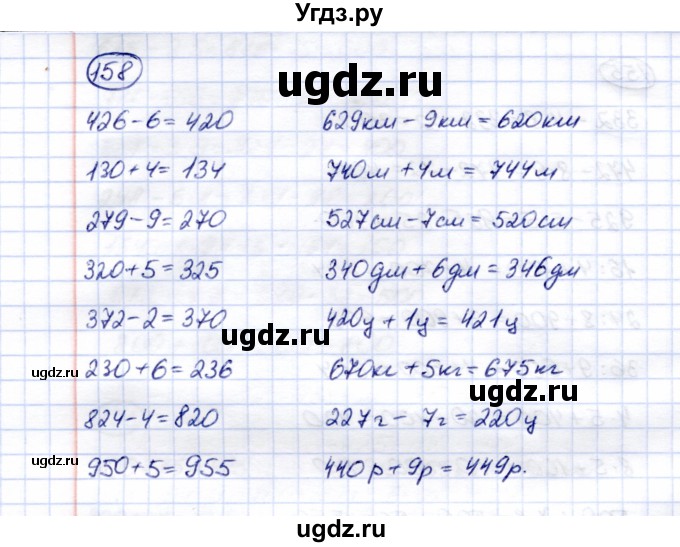 Угдз.ру
158
ugdz.ru
426-6=420
629км-9км=620км
130+4=134
740м+4м=744м
279-9=270
527см-7см=520см
320+5=325
340дм+6дм=346дм
ugdz.ru
372-2=370
420ц+1ц=421ц
ugdz.ru
230+6=236
670кг+5кг=675кг
ugdz.ru
824-4=820
227г-7г=220ц
ugdz.ru
950+5=955
440р+9р=449р.
ugdz.ru